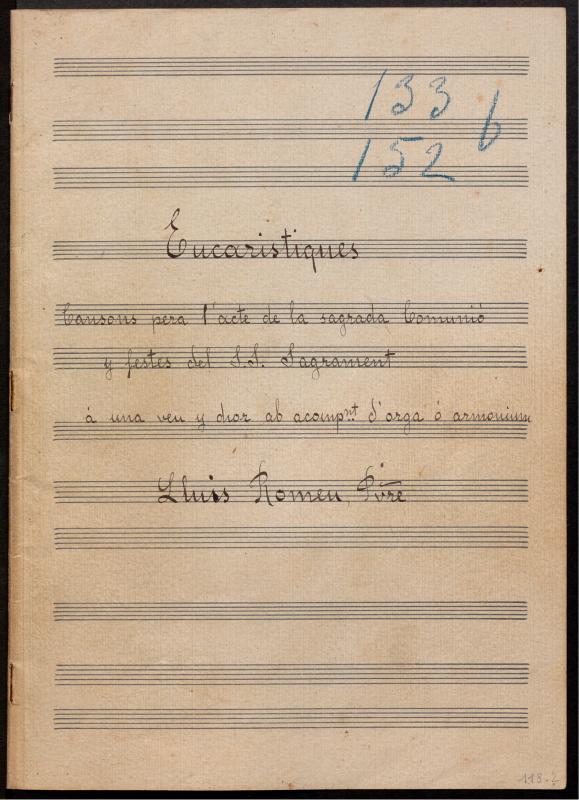 133
152 b
Eucaristiques
Cansons pera l'acte de la sagrada Comunió
y festes del S.S. Sagrament
á una veu y chor ab acompnt. d'orga ó armonium
Lluis Romeu, Pvre
118-2